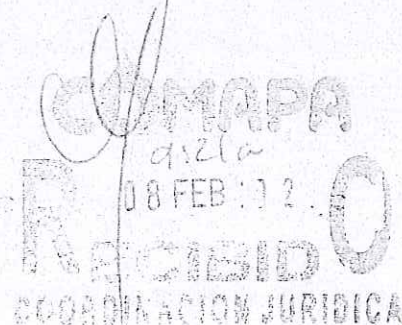 COMAPA
gisela
08 FEB :12.
RECIBIDO
COORDINACION JURIDICA